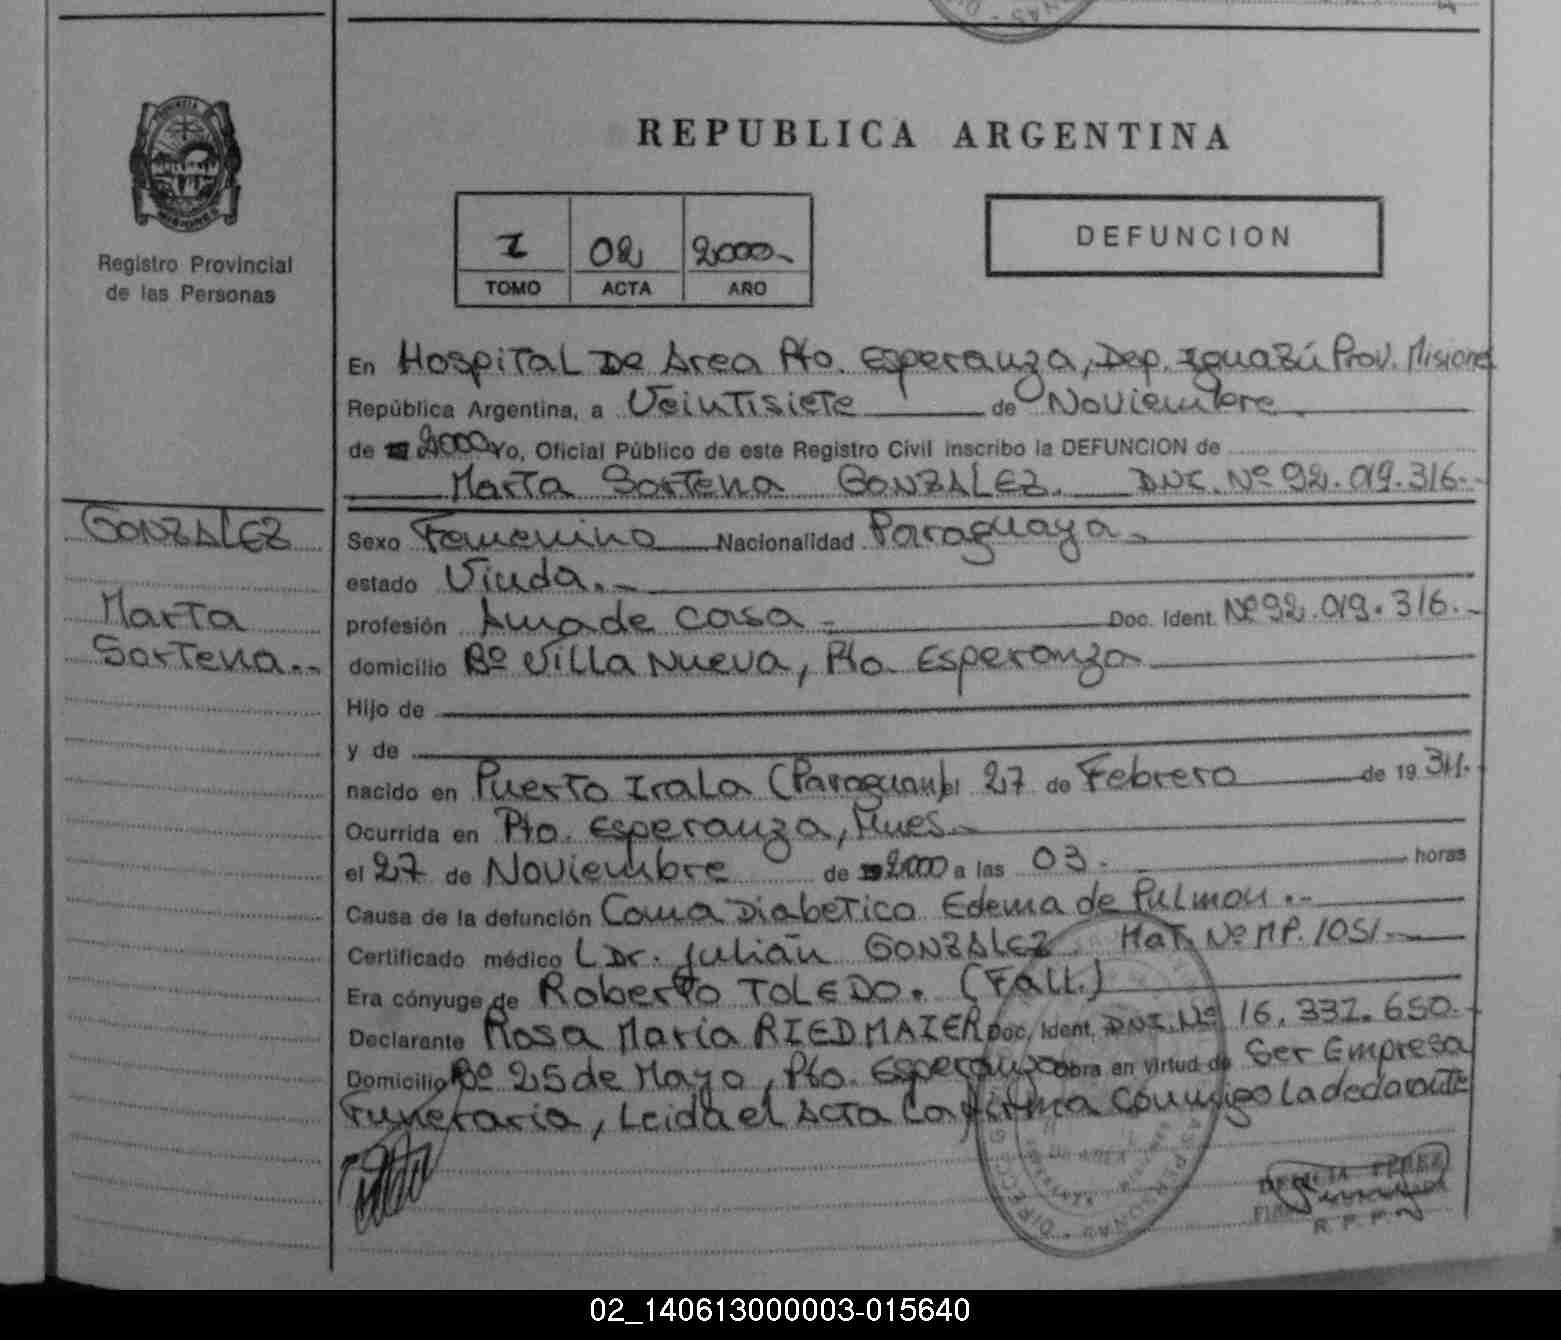 REPUBLICA ARGENTINA
Registro Provincial
de las Personas
I 02 2000-
TOMO ACTA AÑO
DEFUNCION
En Hospital De Area Pto. Esperanza, Dep. Iguazú Prov. Misiones
República Argentina, a Veintisiete de Noviembre
de 2000 Yo, Oficial Público de este Registro Civil inscribo la DEFUNCION de
Marta Sortena GONZALEZ. DNI. Nº 92.019.316.-
GONZALEZ
Marta
Sortena..-
Sexo Femenino Nacionalidad Paraguaya.-
estado Viuda.-
profesión Ama de casa - Doc. Ident. Nº 92.019.316.-
domicilio Bº Villa Nueva, Pto. Esperanza
Hijo de
y de
nacido en Puerto Irala (Paraguay) el 27 de Febrero de 19
Ocurrida en Pto. Esperanza, Mnes.-
el 27 de Noviembre de 2000 a las 03. horas
Causa de la defunción Coma Diabetico Edema de Pulmon.-
Certificado médico Dr. Julián GONZALEZ. Mat. Nº MP. 1051.-
Era cónyuge de Roberto TOLEDO. (Fall.)
Declarante Rosa Maria RIEDMAIER Doc. Ident. DNI. Nº 16.332.650.-
Domicilio Bº 25 de Mayo, Pto. Esperanza Obra en virtud de Ser Empresa
Funeraria, Leida el Acta La firma conmigo La declarante
PEREZ
R. P. P.
02_140613000003-015640